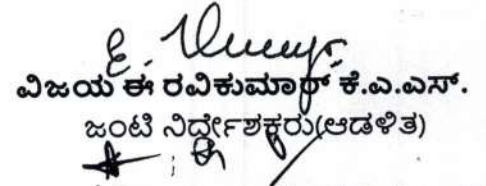 ವಿಜಯ ಈ ರವಿಕುಮಾರ್ ಕೆ.ಎ.ಎಸ್.
ಜಂಟಿ ನಿರ್ದೇಶಕರು(ಆಡಳಿತ)